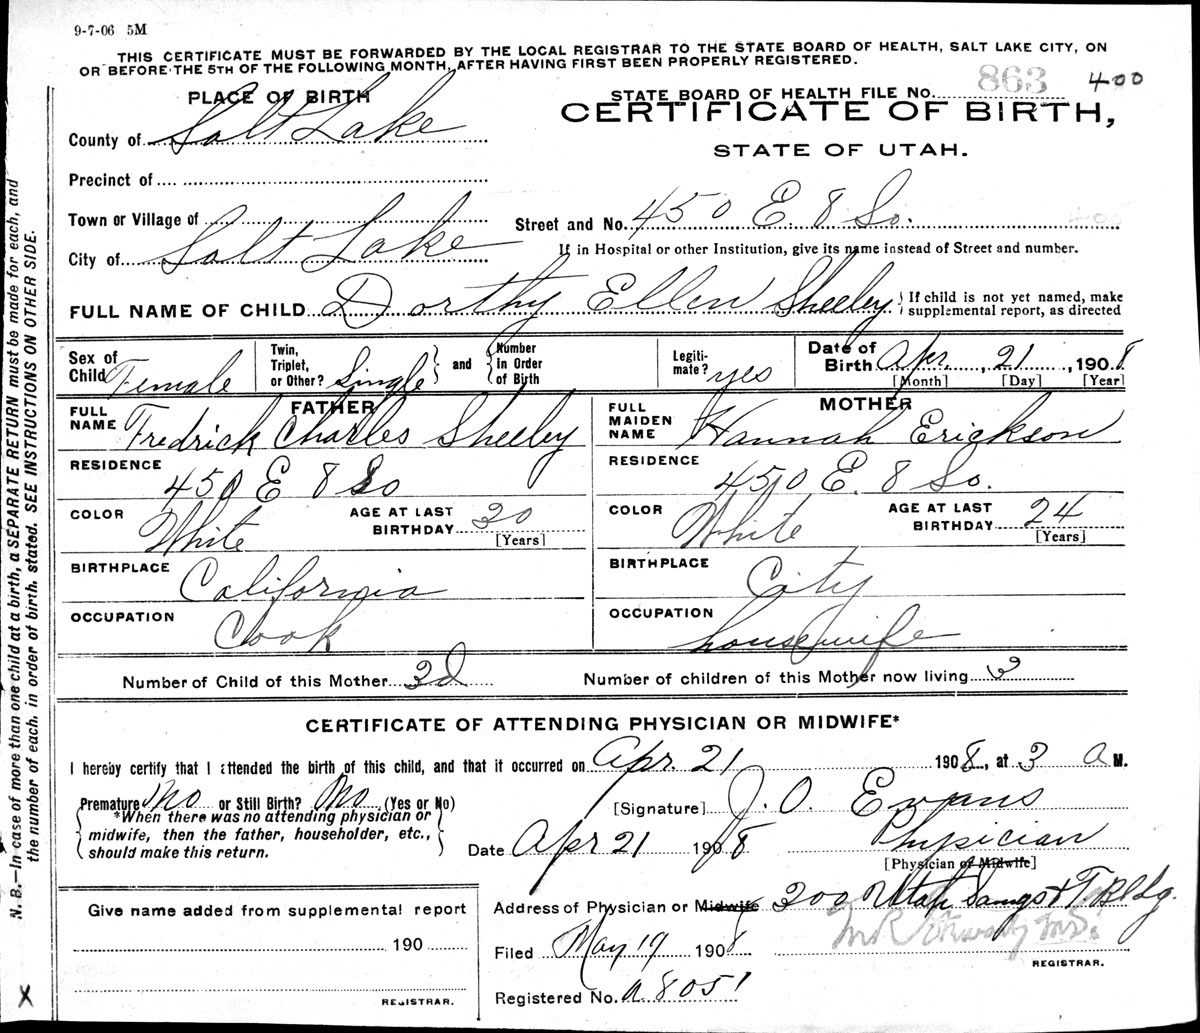 9-7-06 5M
THIS CERTIFICATE MUST BE FORWARDED BY THE LOCAL REGISTRAR TO THE STATE BOARD OF HEALTH, SALT LAKE CITY, ON
OR BEFORE THE 5TH OF THE FOLLOWING MONTH, AFTER HAVING FIRST BEEN PROPERLY REGISTERED.
STATE BOARD OF HEALTH FILE NO. 863 400
PLACE OF BIRTH
CERTIFICATE OF BIRTH,
STATE OF UTAH.
County of Salt Lake
Precinct of
Town or Village of
Street and No. 450 E. 8 So. 405
City of Salt Lake
If in Hospital or other Institution, give its name instead of Street and number.
FULL NAME OF CHILD Dorthy Ellen Sheeley
If child is not yet named, make
supplemental report, as directed
Sex of Child Female
Twin, Triplet, or Other? Single
and Number in Order of Birth
Legiti-mate? yes
Date of Birth Apr. 21, 1908
[Month] [Day] [Year]
FATHER
FULL NAME Fredrick Charles Sheeley
RESIDENCE 450 E 8 So
COLOR White
AGE AT LAST BIRTHDAY 30
[Years]
BIRTHPLACE California
OCCUPATION Cook
MOTHER
FULL MAIDEN NAME Hannah Erickson
RESIDENCE 450 E. 8 So.
COLOR White
AGE AT LAST BIRTHDAY 24
[Years]
BIRTHPLACE City
OCCUPATION housewife
Number of Child of this Mother 3d
Number of children of this Mother now living 3
CERTIFICATE OF ATTENDING PHYSICIAN OR MIDWIFE*
I hereby certify that I attended the birth of this child, and that it occurred on Apr. 21 1908, at 3 a M.
Premature No or Still Birth? No (Yes or No)
*When there was no attending physician or
midwife, then the father, householder, etc.,
should make this return.
[Signature] J. O. Evans
Date Apr 21 1908
Physician
[Physician or Midwife]
Address of Physician or Midwife 300 Utah Savngs & T. Bldg.
Filed May 19 1908
REGISTRAR.
Registered No. a 8051
Give name added from supplemental report
190
REGISTRAR.
N. B.—In case of more than one child at a birth, a SEPARATE RETURN must be made for each, and
the number of each, in order of birth, stated. SEE INSTRUCTIONS ON OTHER SIDE.
X